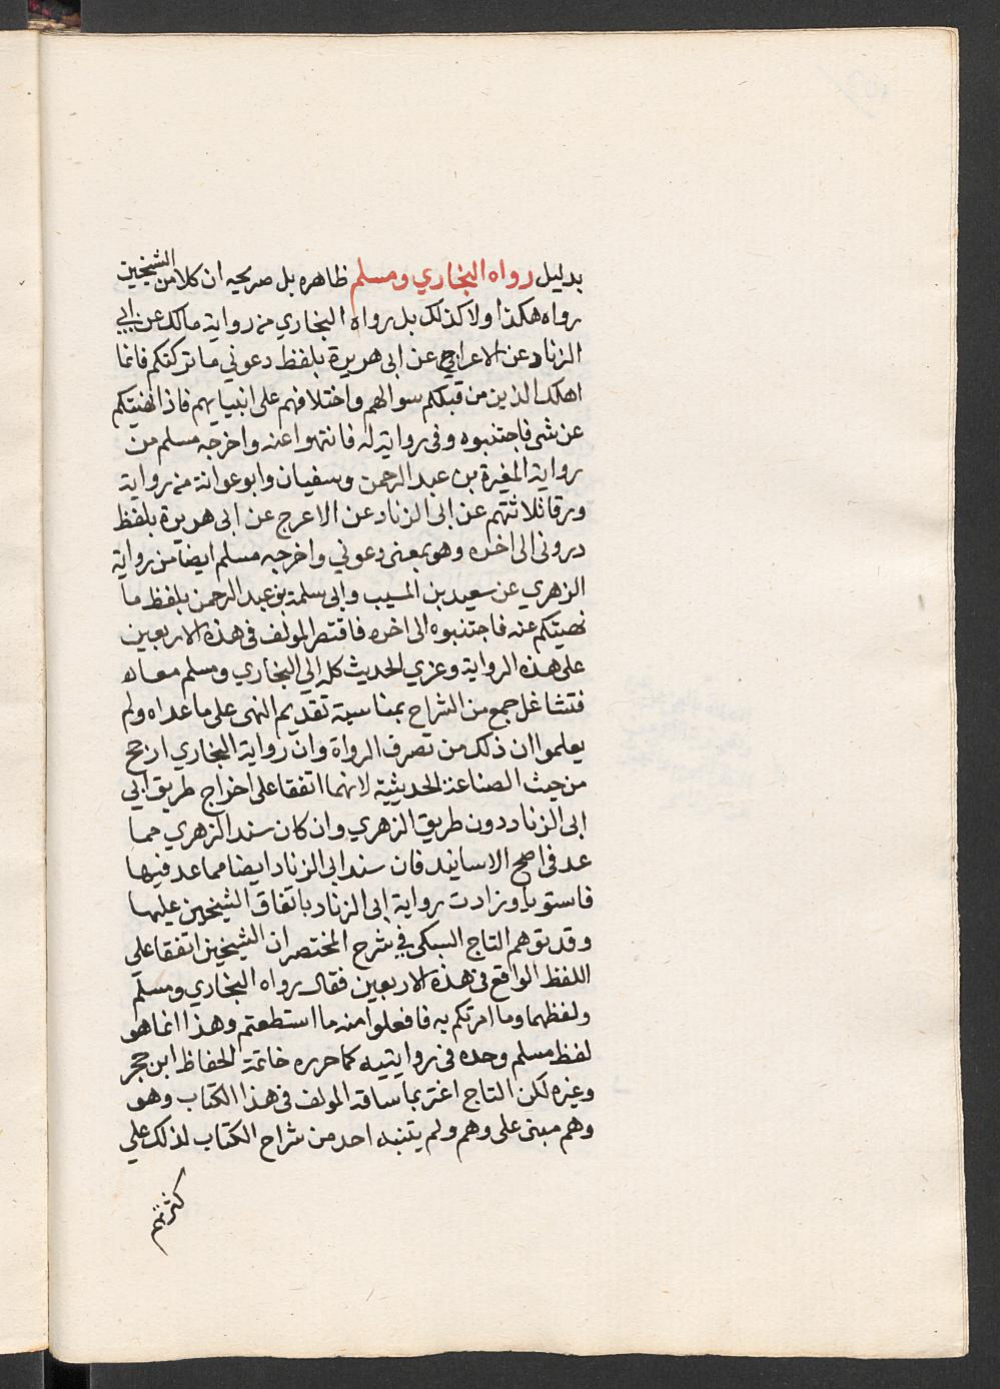 بدليل رواه البخاري ومسلم ظاهره بل صريحه ان كلا من الشيخين
رواه هكذا ولا كذلك بل رواه البخاري من رواية مالك عن ابي
الزناد عن الاعرج عن ابى هريرة بلفظ دعوني ما تركتكم فانما
اهلك الذين من قبلكم سوالهم واختلافهم على انبيايهم فاذا نهيتكم
عن شى فاجتنبوه وفى رواية له فانتهوا عنه واخرجه مسلم من
رواية المغيرة بن عبد الرحمن وسفيان وابو عوانة من رواية
ورقا ثلاثتهم عن ابى الزناد عن الاعرج عن ابى هريرة بلفظ
درونى الى اخره وهو بمعنى دعوني واخرجه مسلم ايضا من رواية
الزهري عن سعيد بن المسيب وابى سلمة بن عبد الرحمن بلفظ ما
نهيتكم عنه فاجتنبوه الى اخره فاقتصر المولف فى هذه الاربعين
على هذه الرواية وعزي الحديث كله الي البخاري ومسلم معا
فتشاغل جمع من الشراح بمناسبة تقديم النهى على ما عداه ولم
يعلموا ان ذلك من تصرف الرواة وان رواية البخاري ارجح
من حيث الصناعة الحديثية لانهما اتفقا على اخراج طريق ابي
ابى الزناد دون طريق الزهري وان كان سند الزهري مما
عد فى اصح الاسانيد فان سند ابى الزناد ايضا مما عد فيها
فاستويا وزادت رواية ابى الزناد باتفاق الشيخين عليها
وقد توهم التاج السبكى في شرح المختصر ان الشيخين اتفقا على
اللفظ الواقع فى هذه الاربعين فقال رواه البخاري ومسلم
ولفظهما وما امرتكم به فافعلوا منه ما استطعتم وهذا انما هو
لفظ مسلم وحده فى روايتيه كما حرره خاتمة الحفاظ ابن حجر
وغيره لكن التاج اغتر بما ساقه المولف فى هذا الكتاب وهو
وهم مبنى على وهم ولم يتنبه احد من شراح الكتاب لذلك علي
كثرتهم